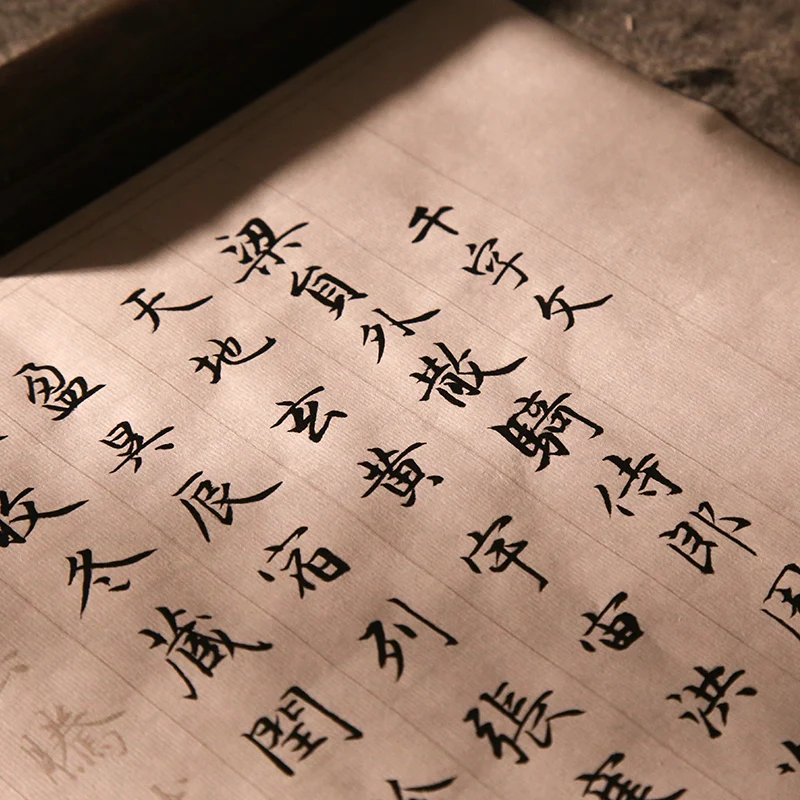 千字文
梁員外散騎侍郎周
天地玄黄宇宙洪
盈昃辰宿列張寒
收冬藏閏
騰